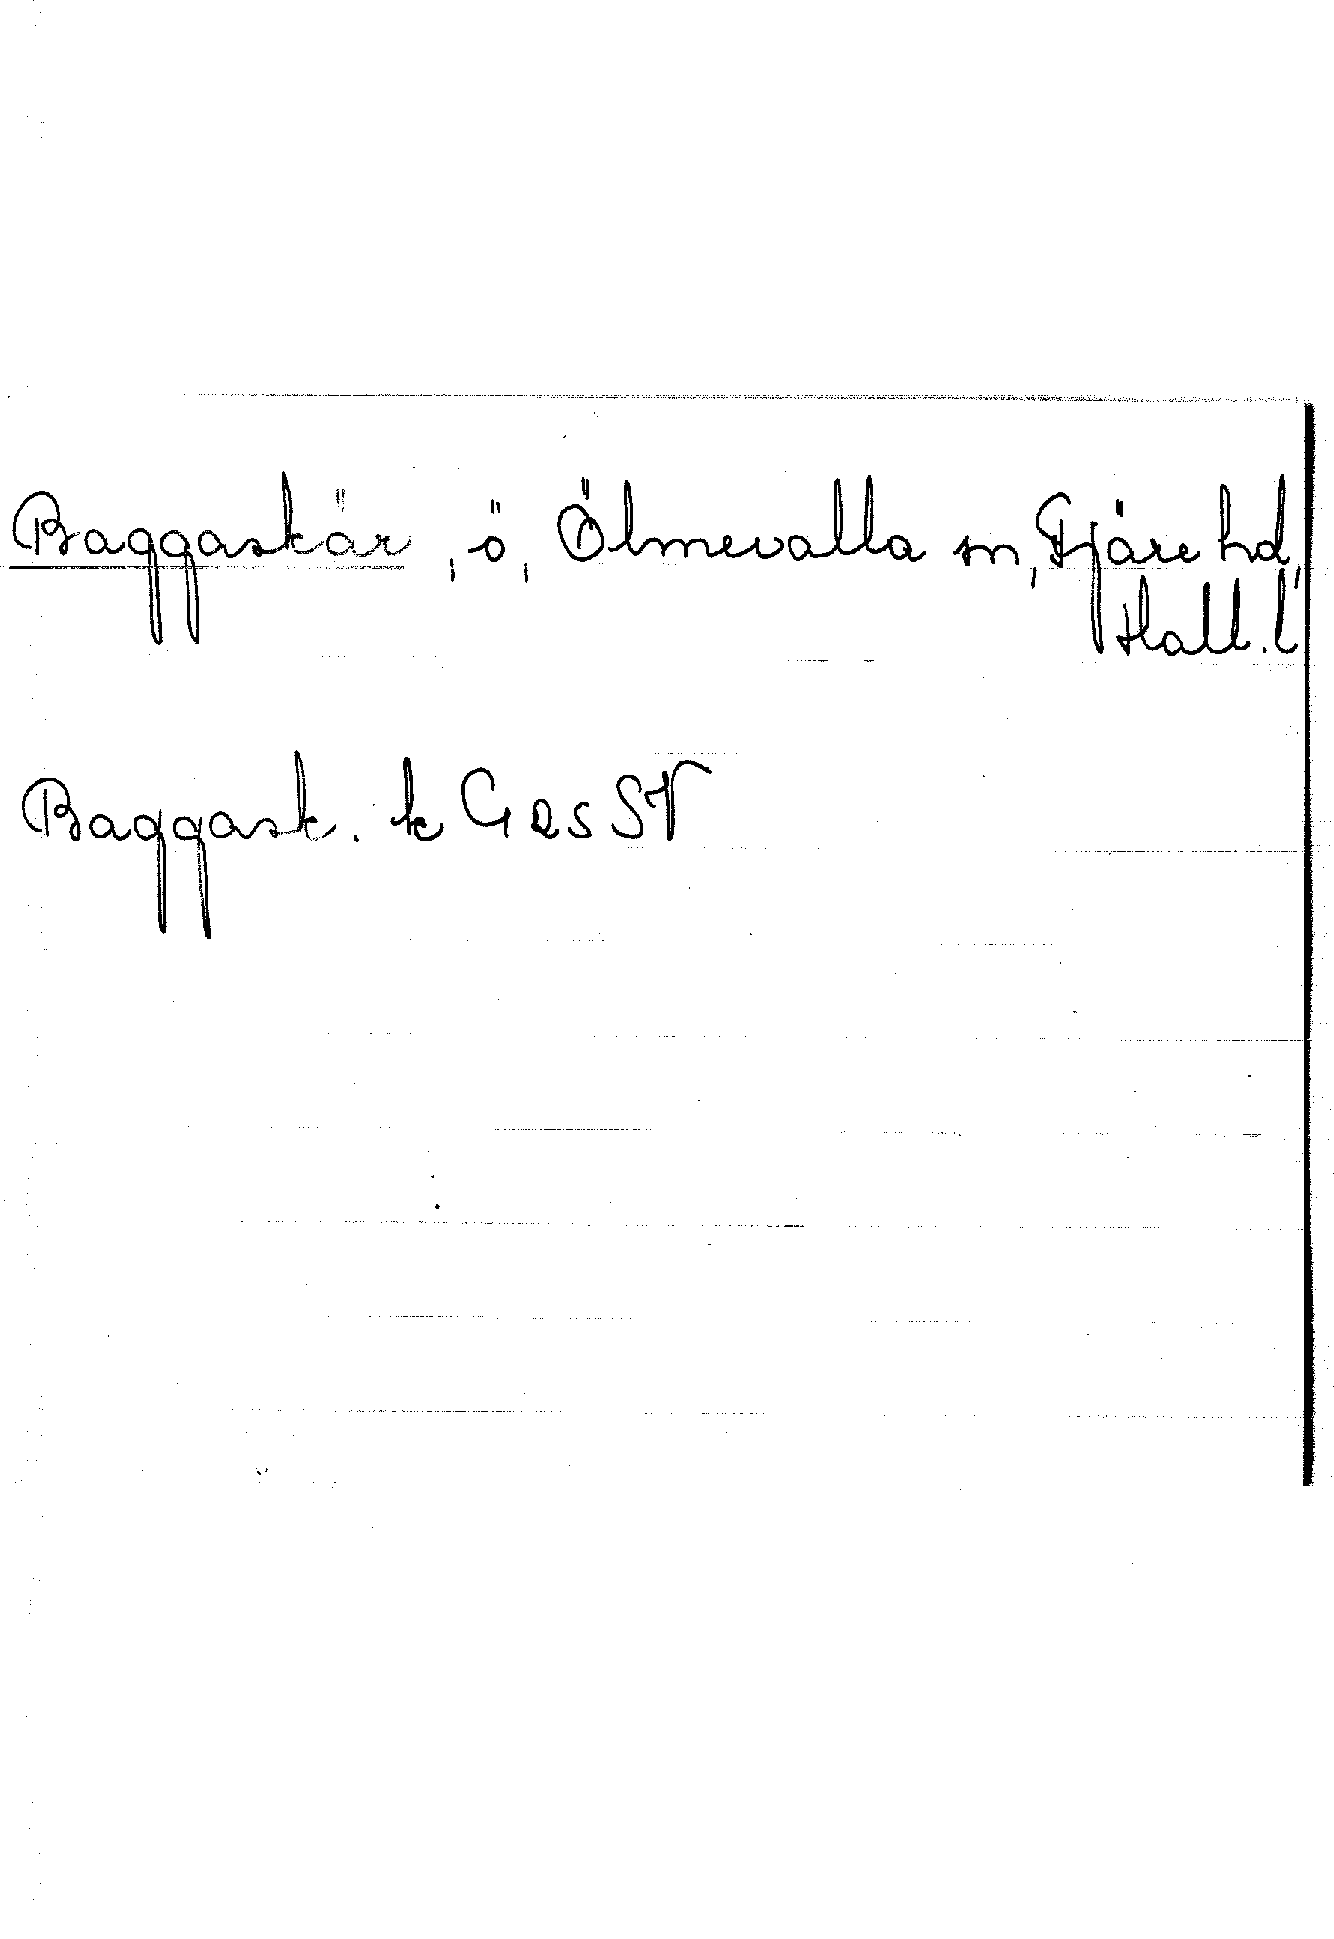 Baggaskär, ö, Ölmevalla sn, Fjäre hd,
Hall. l
Baggask. k G RS SV